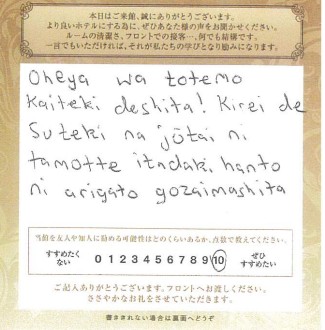 本日はご来館、誠にありがとうございます。
より良いホテルにする為に、ぜひあなた様の声をお聞かせください。
ルームの清潔さ、フロントでの接客…、何でも結構です。
一言でもいただければ、それが私たちの学びとなり励みになります。
Oheya wa totemo
Kaiteki deshita! Kirei de
Suteki na jōtai ni
tamotte itadaki, honto
ni arigato gozaimashita
当館を友人や知人に勧める可能性はどのくらいあるか、点数で教えてください。
すすめたくない 0 1 2 3 4 5 6 7 8 9 10 ぜひすすめたい
ご記入ありがとうございます。フロントへお渡しください。
ささやかなお礼をさせていただきます。
書ききれない場合は裏面へどうぞ